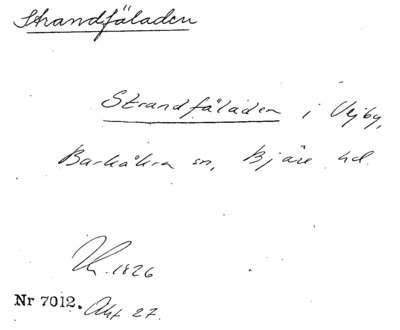 Strandfäladen
Strandfäladen i Vejby,
Barkåkra sn, Bjäre hd.
1826
Nr 7012. Akt 27.